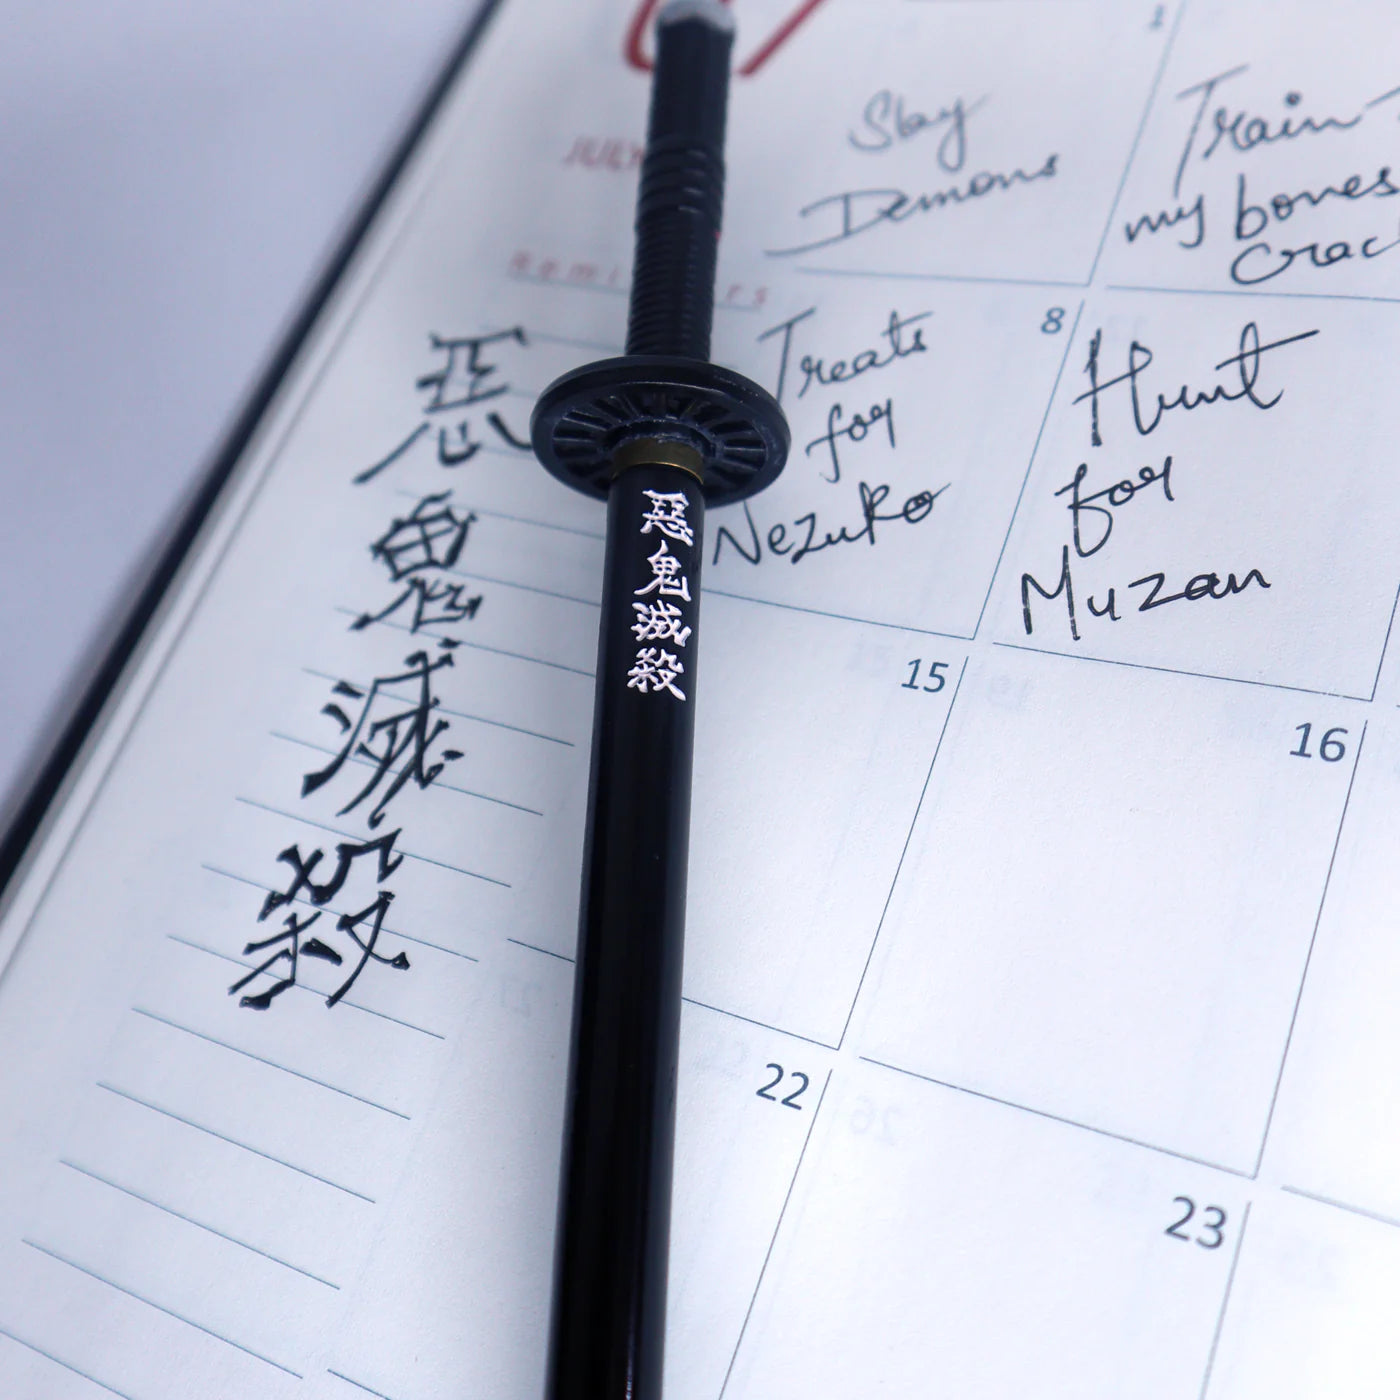 JULY
1
Slay
Demons
Train
my bones
Crac
8
Treats
for
Nezuko
Hunt
for
Muzan
惡鬼滅殺
惡鬼滅殺
15
16
22
23